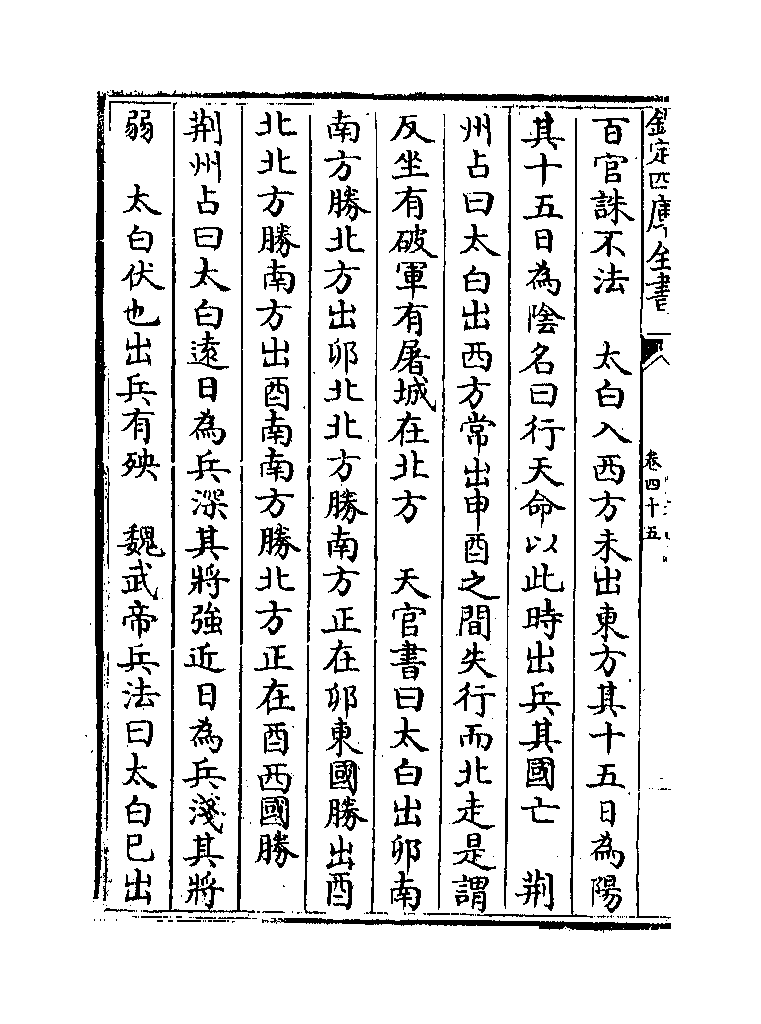 欽定四庫全書
卷四十五
百官誅不法　太白入西方未出東方其十五日為陽
其十五日為陰名曰行天命以此時出兵其國亡　荆
州占曰太白出西方常出申酉之間失行而北走是謂
反坐有破軍有屠城在北方　天官書曰太白出卯南
南方勝北方出卯北北方勝南方正在卯東國勝出酉
北北方勝南方出酉南南方勝北方正在酉西國勝
荆州占曰太白遠日為兵深其將強近日為兵淺其將
弱　太白伏也出兵有殃　魏武帝兵法曰太白已出